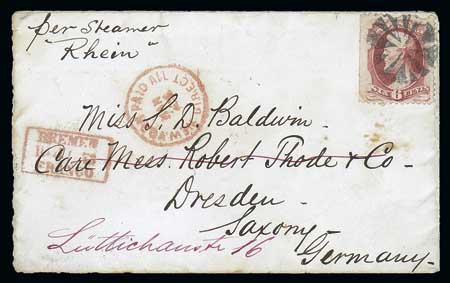 per Steamer
"Rhein"
PAID ALL
DIRECT
Miss S. D. Baldwin
BREMEN
FRANCO
Care Mess. Robert Thode & Co
Dresden
Saxony
Lüttichaustr 16
Germany